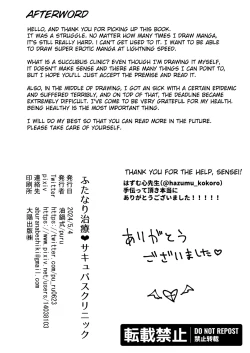 AFTERWORD
HELLO, AND THANK YOU FOR PICKING UP THIS BOOK.
IT WAS A STRUGGLE. NO MATTER HOW MANY TIMES I DRAW MANGA,
IT'S STILL REALLY HARD. I CAN'T GET USED TO IT. I WANT TO BE ABLE
TO DRAW SUPER EROTIC MANGA AT LIGHTNING SPEED.
WHAT IS A SUCCUBUS CLINIC? EVEN THOUGH I'M DRAWING IT MYSELF,
IT DOESN'T MAKE SENSE AND THERE ARE MANY THINGS I CAN POINT TO,
BUT I HOPE YOU'LL JUST ACCEPT THE PREMISE AND READ IT.
ALSO, IN THE MIDDLE OF DRAWING, I GOT AN SICK WITH A CERTAIN EPIDEMIC
AND SUFFERED TERRIBLY, AND ON TOP OF THAT, THE DEADLINE BECAME
EXTREMELY DIFFICULT. I'VE COME TO BE VERY GRATEFUL FOR MY HEALTH.
BEING HEALTHY IS THE MOST IMPORTANT THING.
I WILL DO MY BEST SO THAT YOU CAN READ MORE IN THE FUTURE.
PLEASE TAKE CARE OF YOURSELF.
THANK YOU FOR THE HELP, SENSEI!
はずむ心先生(@hazumu_kokoro)
手伝って頂き本当に
ありがとうございました!!!!!
ありがとう
ございました♡
ふたなり治療♥サキュバスクリニック
発行日 2024/5/4
発行者 油鍋式/puru
Twitter https://twitter.com/pu_ru0623
pixiv https://www.pixiv.net/users/14038103
連絡先 aburanabeshiki@gmail.com
印刷所 大陽出版㈱
転載禁止
DO NOT REPOST
禁止转载